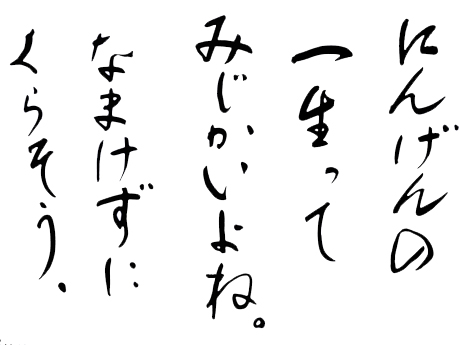 にんげんの
一生って
みじかいよね。
なまけずに
くらそう.